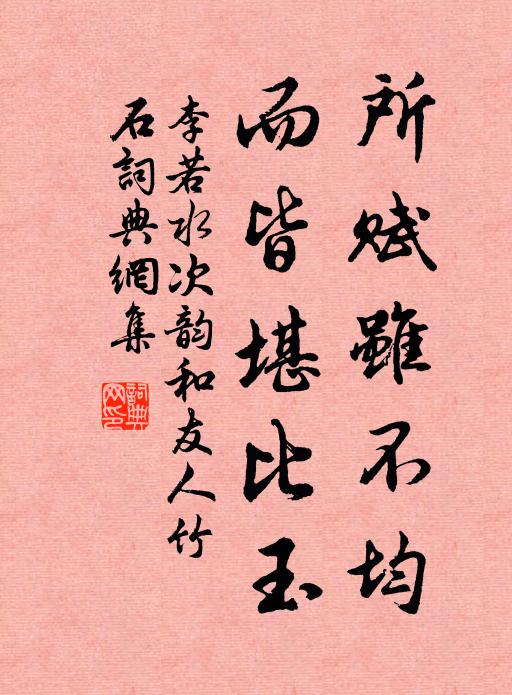 所賦雖不均
而皆堪比玉
李若水次韵和友人竹
石詞典網集
詞典
网印